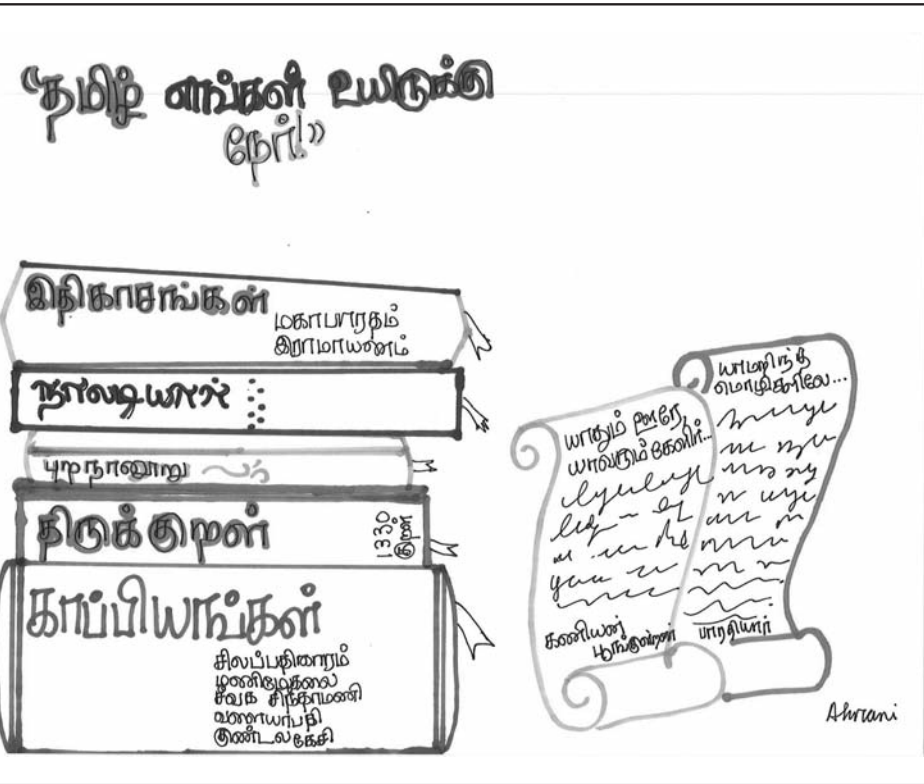 "தமிழ் எங்கள் உயிருக்கு
நேர்!"
இதிகாசங்கள்
மகாபாரதம்
இராமாயணம்
நாலடியார்
புறநானூறு
திருக்குறள்
1330
குறள்
காப்பியங்கள்
சிலப்பதிகாரம்
மணிமேகலை
சீவக சிந்தாமணி
வளையாபதி
குண்டலகேசி
யாதும் ஊரே,
யாவரும் கேளிர்...
கணியன்
பூங்குன்றன்
யாமறிந்த
மொழிகளிலே...
பாரதியார்